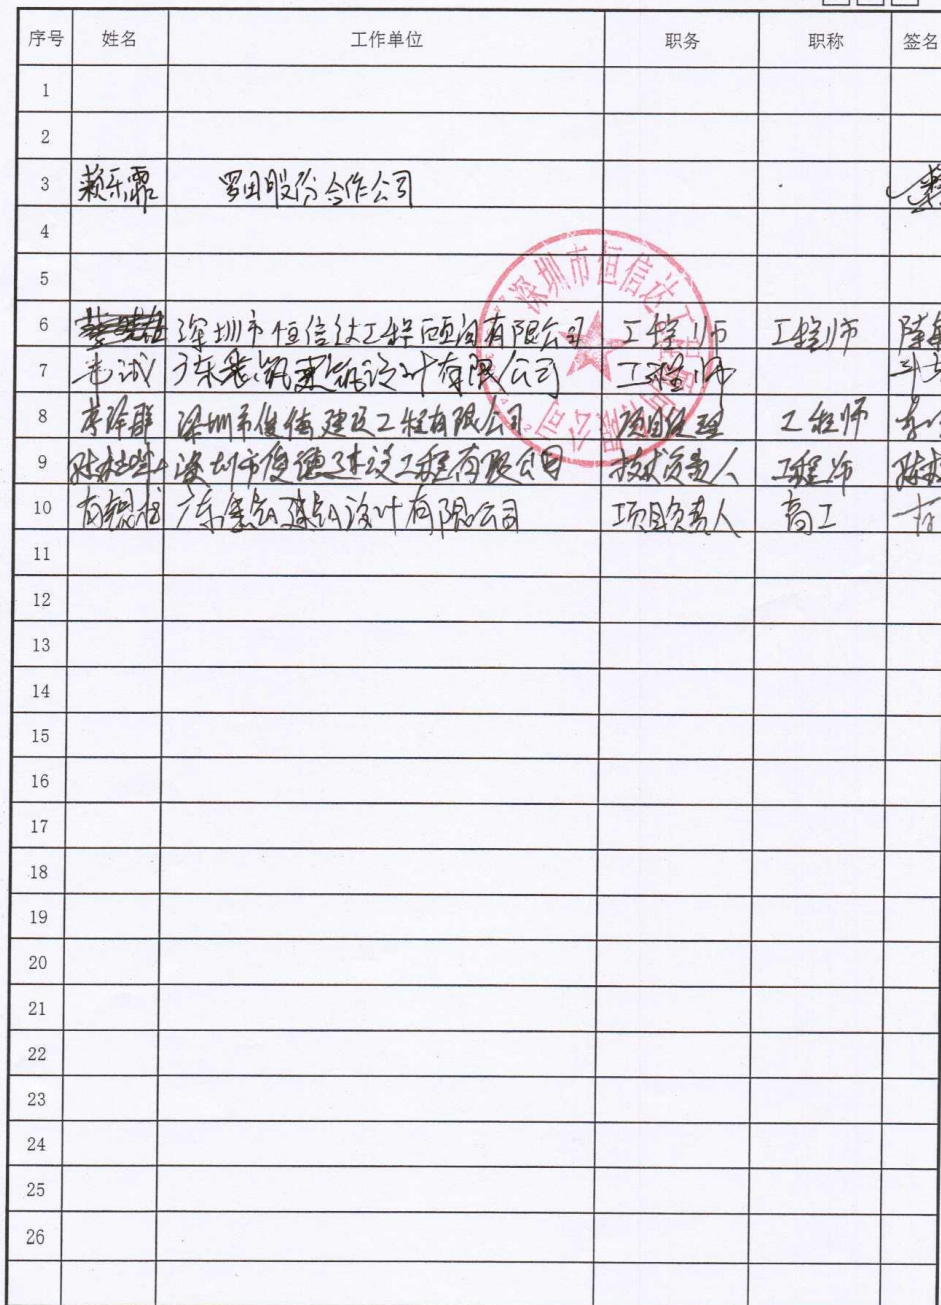 序号 姓名 工作单位 职务 职称 签名
1
2
3 罗田股份合作公司
4
5
6 深圳市恒信达工程顾问有限公司 工程师 工程师
7 建筑设计有限公司 工程师
8 深圳市俊德建设工程有限公司 项目经理 工程师
9 深圳市俊德建设工程有限公司 技术负责人 工程师
10 建筑设计有限公司 项目负责人 高工
11
12
13
14
15
16
17
18
19
20
21
22
23
24
25
26
深圳市恒信达工程顾问有限公司